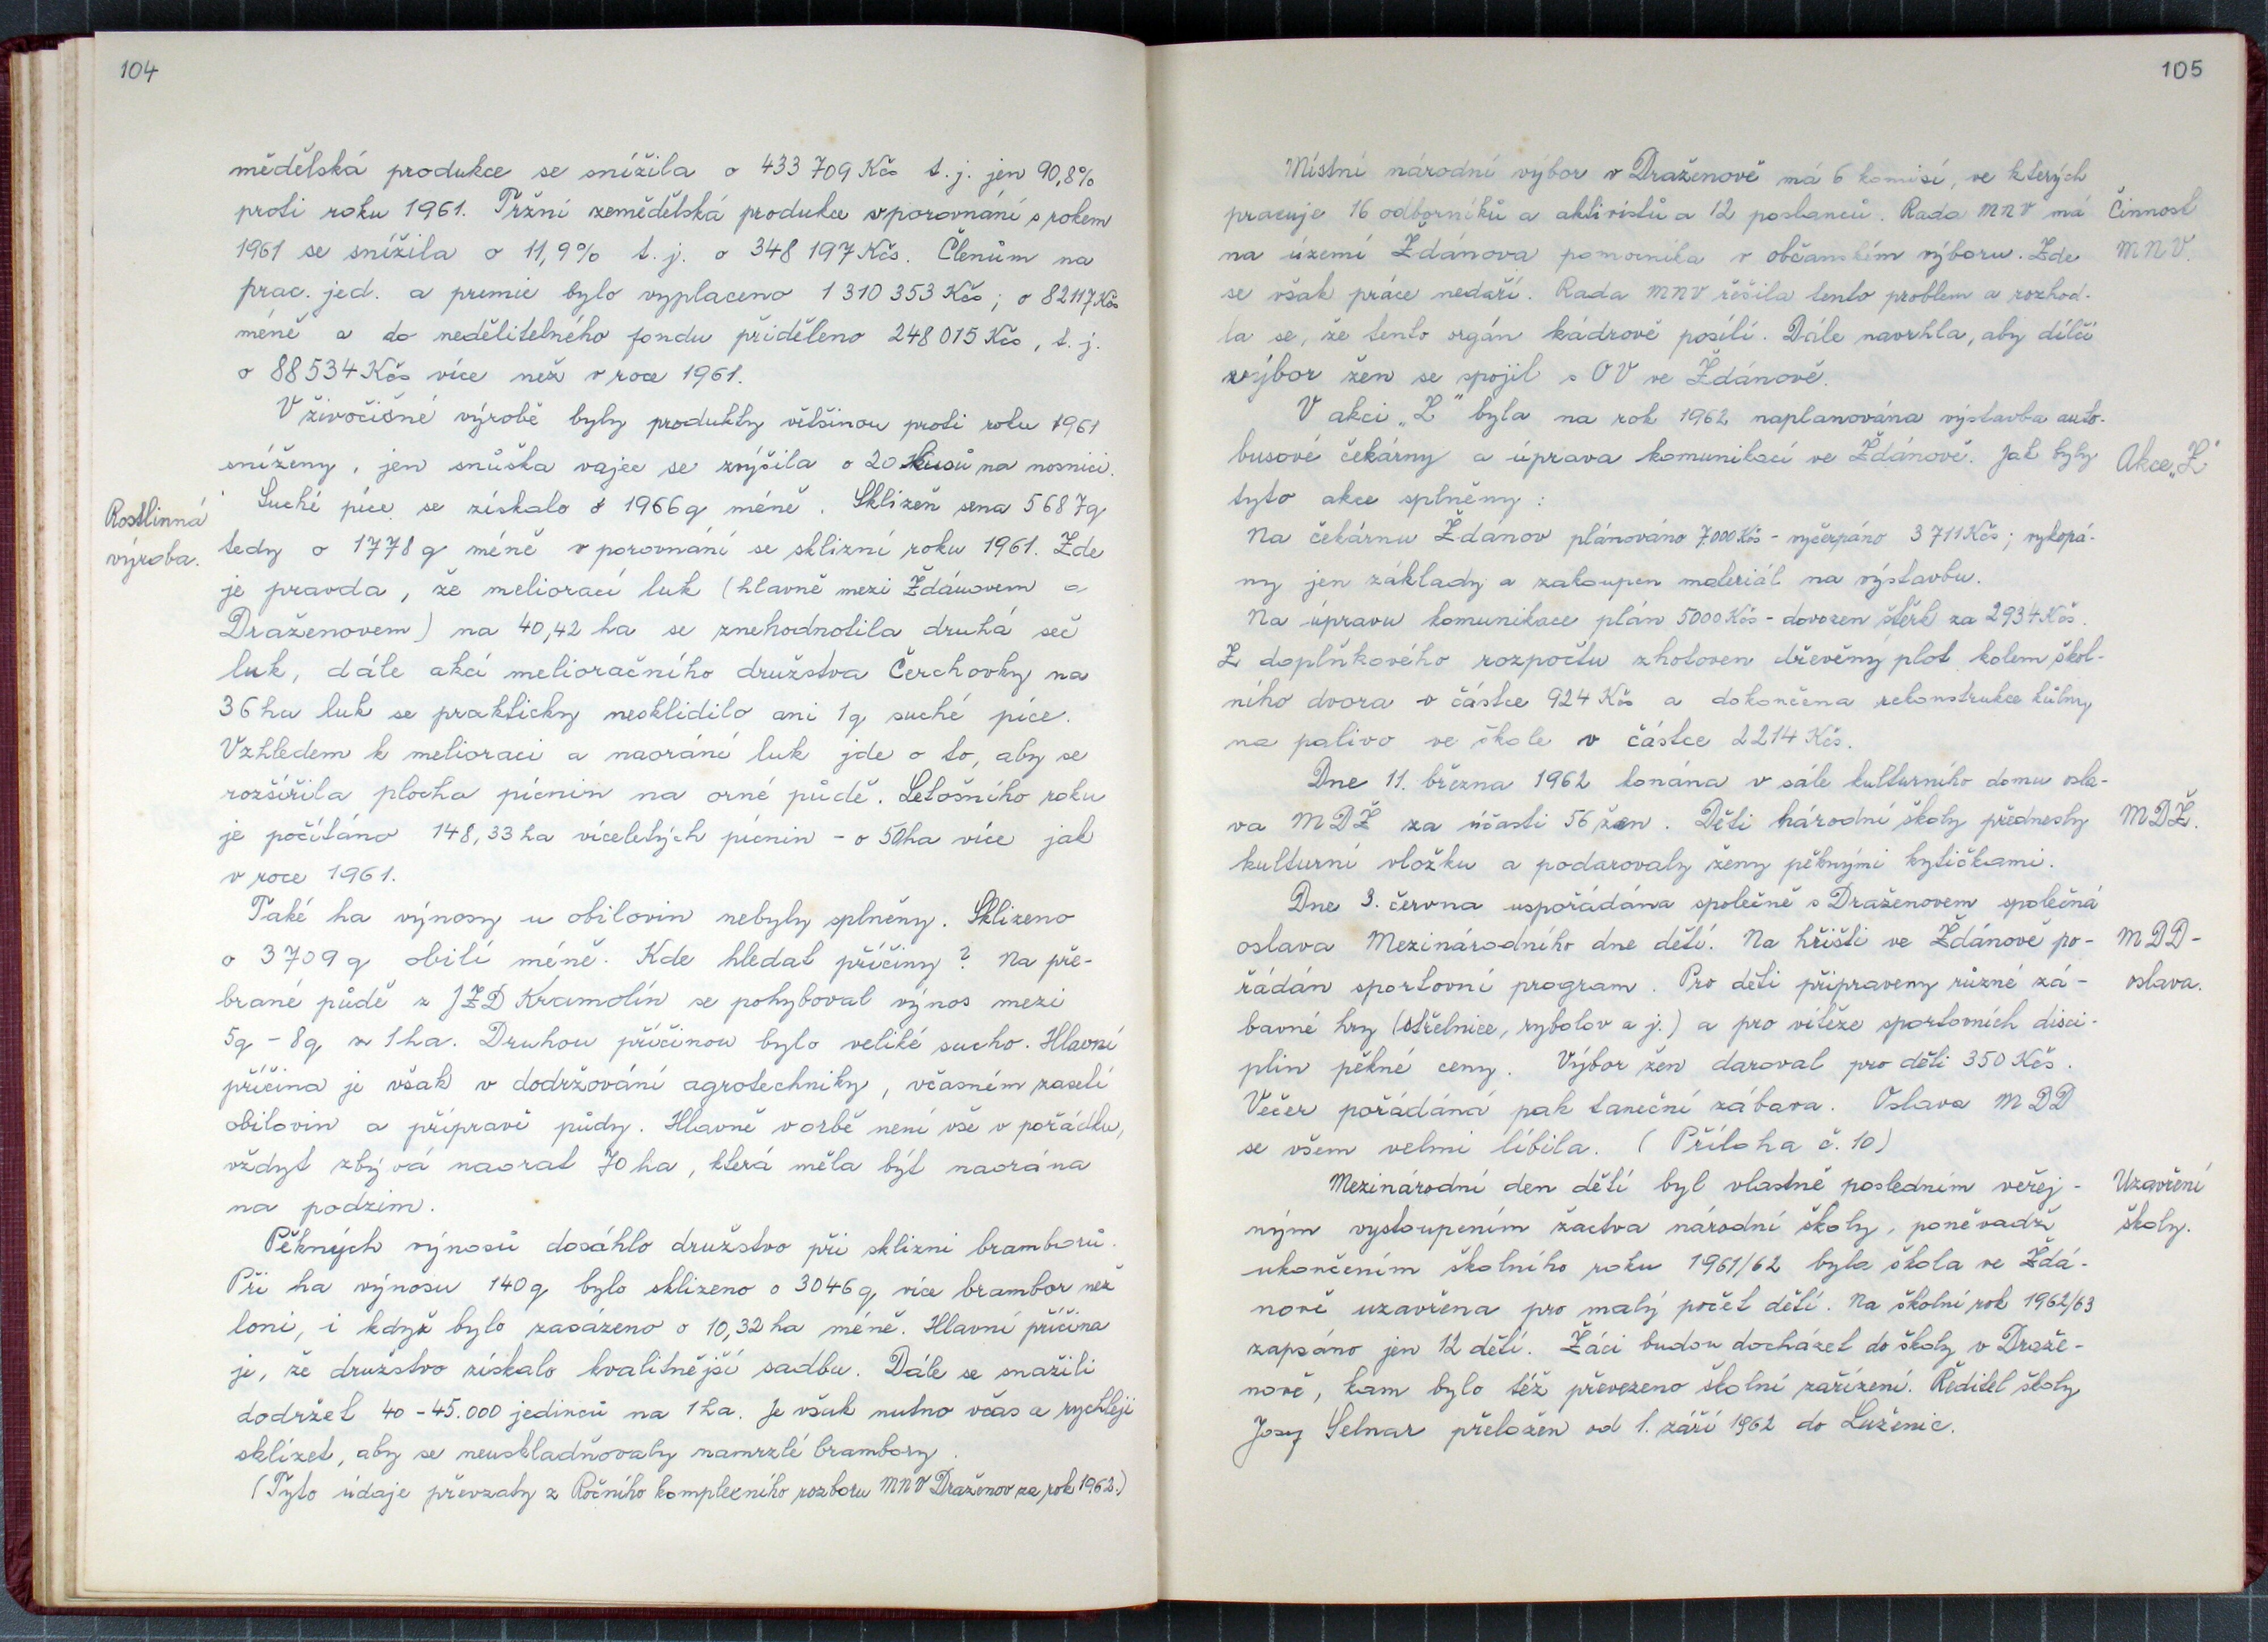 104
mědělská produkce se snížila o 433 709 Kčs t. j. jen 90,8%
proti roku 1961. Tržní zemědělská produkce v porovnání s rokem
1961 se snížila o 11,9% t. j. o 348 197 Kčs. Členům na
prac. jed. a premie bylo vyplaceno 1 310 353 Kčs; o 82117 Kčs
méně a do nedělitelného fondu přiděleno 248 015 Kčs, t. j.
o 88534 Kčs více než v roce 1961.
V živočišné výrobě byly produkty většinou proti roku 1961
sníženy, jen snůška vajec se zvýšila o 20 kusů na nosnici.
Rostlinná
výroba.
Suché píce se získalo o 1966 q méně. Sklizeň sena 5687 q
tedy o 1778 q méně v porovnání se sklizní roku 1961. Zde
je pravda, že meliorací luk (hlavně mezi Ždánovem a
Draženovem) na 40,42 ha se znehodnotila druhá seč
luk, dále akcí melioračního družstva Čerchovky na
36 ha luk se prakticky nesklidilo ani 1 q suché píce.
Vzhledem k melioraci a naorání luk jde o to, aby se
rozšířila plocha pícnin na orné půdě. Letošního roku
je počítáno 148,33 ha víceletých pícnin - o 50 ha více jak
v roce 1961.
Také ha výnosy u obilovin nebyly splněny. Sklizeno
o 3709 q obilí méně. Kde hledat příčiny? Na pře-
brané půdě z JZD Kramolín se pohyboval výnos mezi
5q - 8q z 1 ha. Druhou příčinou bylo veliké sucho. Hlavní
příčina je však v dodržování agrotechniky, včasném zasetí
obilovin a přípravě půdy. Hlavně v orbě není vše v pořádku,
vždyt zbývá naorat 70 ha, která měla být naorána
na podzim.
Pěkných výnosů dosáhlo družstvo při sklizni bramborů.
Při ha výnosu 140 q bylo sklizeno o 3046 q více brambor než
loni, i když bylo zasázeno o 10,32 ha méně. Hlavní příčina
je, že družstvo získalo kvalitnější sadbu. Dále se snažili
dodržet 40 - 45.000 jedinců na 1 ha. Je však nutno včas a rychleji
sklízet, aby se neuskladňovaly namrzlé brambory.
(Tyto údaje převzaty z Ročního komplexního rozboru MNV Draženov za rok 1962.)
105
Místní národní výbor v Draženově má 6 komisí, ve kterých
pracuje 16 odborníků a aktivistů a 12 poslanců. Rada MNV má
na území Ždánova pomocníka v občanském výboru. Zde
se však práce nedaří. Rada MNV řešila tento problem a rozhod-
la se, že tento orgán kádrově posílí. Dále navrhla, aby dílčí
výbor žen se spojil s OV ve Ždánově.
Činnost
MNV.
V akci „Z" byla na rok 1962 naplanována výstavba auto-
busové čekárny a úprava komunikací ve Ždánově. Jak byly
tyto akce splněny:
Akce „Z"
Na čekárnu Ždánov plánováno 7.000 Kčs - vyčerpáno 3711 Kčs; vykopá-
ny jen základy a zakoupen materiál na výstavbu.
Na úpravu komunikace plán 5000 Kčs - dovozen štěrk za 2934 Kčs.
Z doplňkového rozpočtu zhotoven dřevěný plot kolem škol-
ního dvora v částce 924 Kčs a dokončena rekonstrukce kůlny
na palivo ve škole v částce 2214 Kčs.
Dne 11. března 1962 konána v sále kulturního domu osla-
va MDŽ za účasti 56 žen. Děti národní školy přednesly
kulturní vložku a podarovaly ženy pěknými kytičkami.
MDŽ.
Dne 3. června uspořádána společně s Draženovem společná
oslava Mezinárodního dne dětí. Na hřišti ve Ždánově po-
řádán sportovní program. Pro děti připraveny různé zá-
bavné hry (střelnice, rybolov a j.) a pro vítěze sportovních disci-
plin pěkné ceny. Výbor žen daroval pro děti 350 Kčs.
Večer pořádáná pak taneční zábava. Oslava MDD
se všem velmi líbila. (Příloha č. 10)
MDD -
oslava.
Mezinárodní den dětí byl vlastně posledním veřej-
ným vystoupením žactva národní školy, poněvadž
ukončením školního roku 1961/62 byla škola ve Ždá-
nově uzavřena pro malý počet dětí. Na školní rok 1962/63
zapsáno jen 12 dětí. Žáci budou docházet do školy v Draže-
nově, kam bylo též převezeno školní zařízení. Ředitel školy
Josef Selnar přeložen od 1. září 1962 do Luženic.
Uzavření
školy.